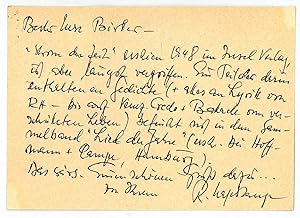 Bester Herr Birker –
"Strom der Zeit" erschien 1948 im Insel Verlag,
ist aber längst vergriffen. Ein Teil der darin
enthaltenen Gedichte (+ alles an Lyrik von
RH – bis auf Venez. Credo + Ballade vom ver-
schütteten Leben) befindet sich in dem Sam-
melband "Lied der Ferne" (ersch. bei Hoff-
mann + Campe, Hamburg)
Das wärs. Einen schönen Gruß dazu...
von Ihrem
R. Hagelstange